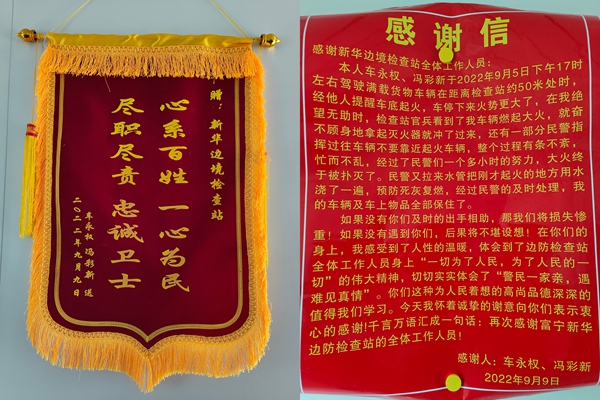 赠：新华边境检查站
心系百姓 一心为民
尽职尽责 忠诚卫士
车永权 冯彩新 送
二〇二二年九月九日
感谢信
感谢新华边境检查站全体工作人员：
本人车永权、冯彩新于2022年9月5日下午17时
左右驾驶满载货物车辆在距离检查站约50米处时，
经他人提醒车底起火，车停下来火势更大了，在我绝
望无助时，检查站官兵看到了我车燃起大火，就奋
不顾身地拿起灭火器就冲了过来，还有一部分民警指
挥过往车辆不要靠近起火车辆，整个过程有条不紊，
忙而不乱，经过了民警们一个多小时的努力，大火终
于被扑灭了。民警又拉来水管把刚才起火的地方用水
浇了一遍，预防死灰复燃，经过民警的及时处理，我
的车辆及车上物品全部保住了。
如果没有你们及时的出手相助，那我们将损失惨
重！如果没有遇到你们，后果将不堪设想！在你们的
身上，我感受到了人性的温暖，体会到了边防检查站
全体工作人员身上“一切为了人民，为了人民的一
切”的伟大精神，切切实实体会了“警民一家亲，遇
难见真情”。你们这种为人民着想的高尚品德深深的
值得我们学习。今天我怀着诚挚的谢意向你们表示衷
心的感谢！千言万语汇成一句话：再次感谢富宁新华
边防检查站的全体工作人员！
感谢人：车永权、冯彩新
2022年9月9日